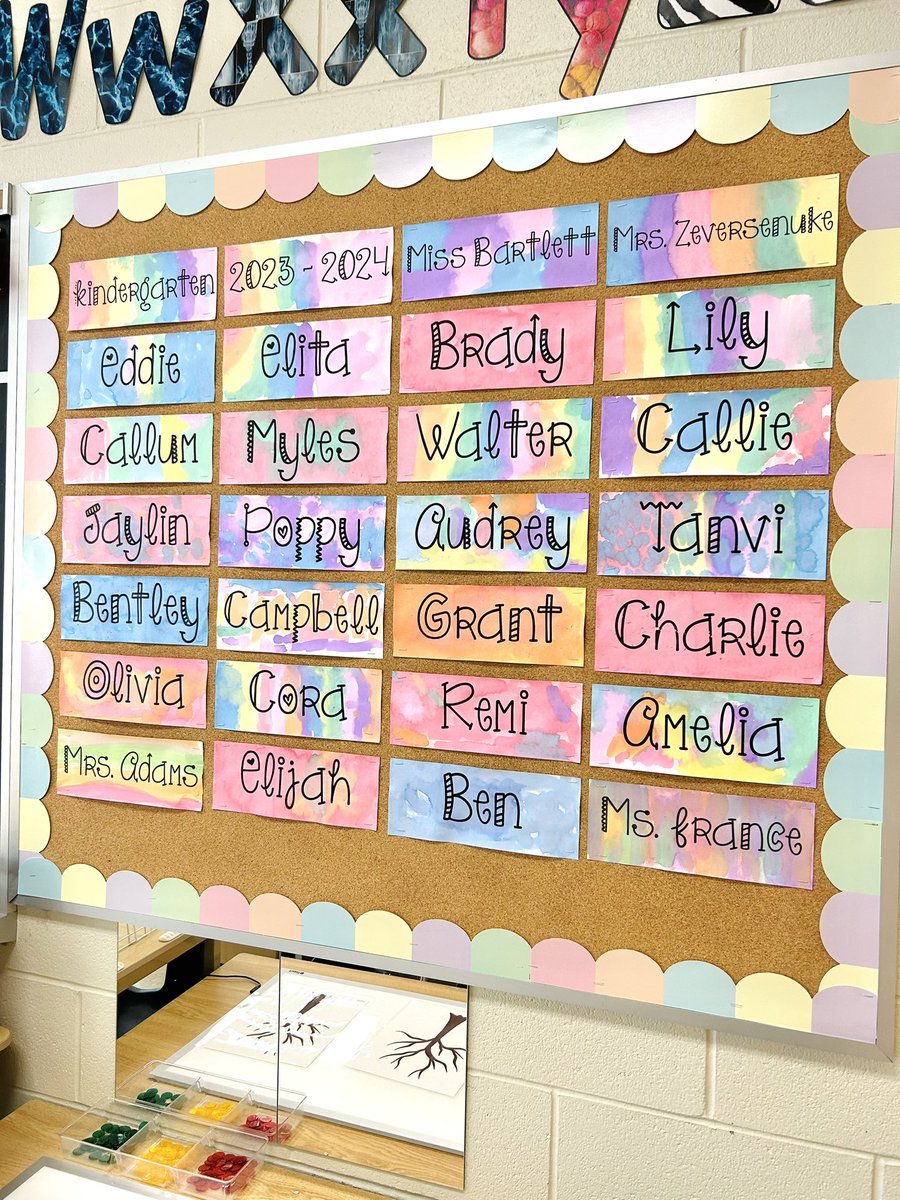 Ww Xx Yy
kindergarten 2023 - 2024 Miss Bartlett Mrs. Zeversenuke
Eddie Elita Brady Lily
Callum Myles Walter Callie
Jaylin Poppy Audrey Tanvi
Bentley Campbell Grant Charlie
Olivia Cora Remi Amelia
Mrs. Adams Elijah Ben Ms. france